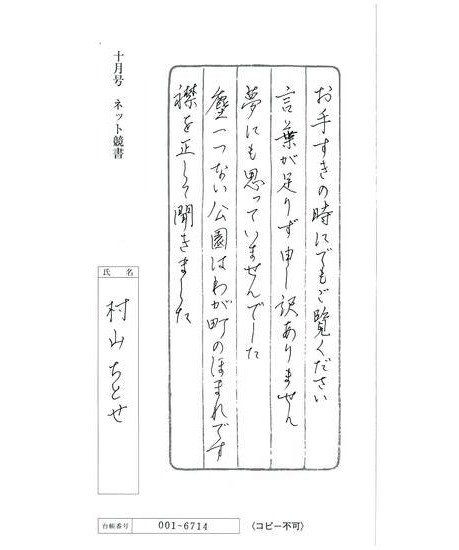 お手すきの時にでもご覧ください
言葉が足りず申し訳ありません
夢にも思っていませんでした
塵一つない公園はわが町のほまれです
襟を正して聞きました
十月号 ネット競書
氏名
村山ちとせ
台帳番号 001-6714
〈コピー不可〉